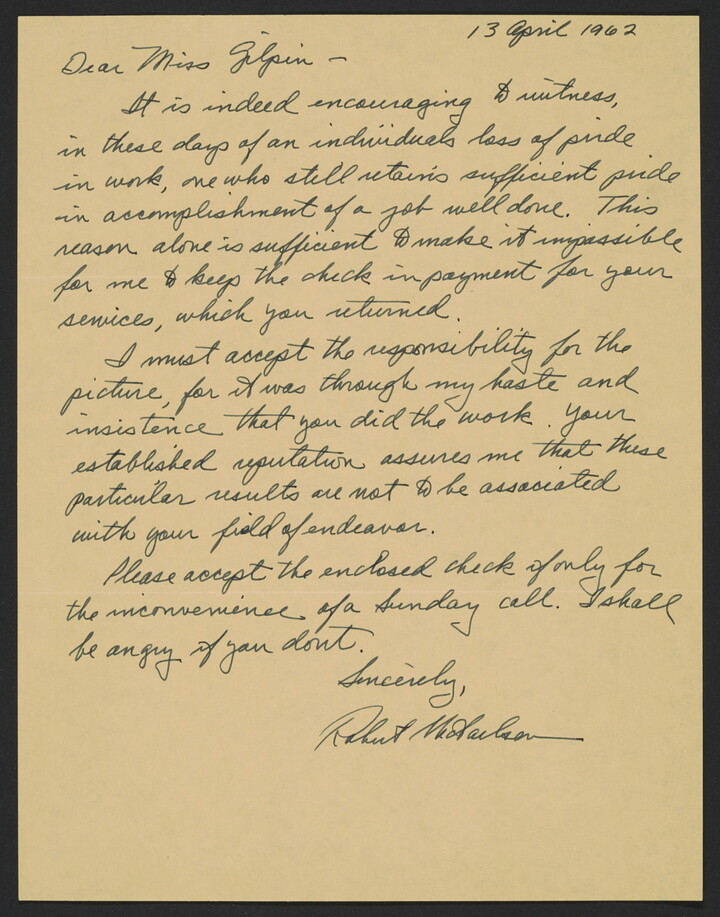 13 April 1962
Dear Miss Gilpin –
It is indeed encouraging to witness,
in these days of an individuals loss of pride
in work, one who still retains sufficient pride
in accomplishment of a job well done. This
reason alone is sufficient to make it impossible
for me to keep the check in payment for your
services, which you returned.
I must accept the responsibility for the
picture, for it was through my haste and
insistence that you did the work. Your
established reputation assures me that these
particular results are not to be associated
with your field of endeavor.
Please accept the enclosed check if only for
the inconvenience of a Sunday call. I shall
be angry if you dont.
Sincerely,
Robert